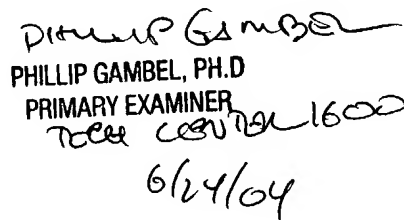 PHILLIP GAMBEL
PHILLIP GAMBEL, PH.D
PRIMARY EXAMINER
TECH CENTER 1600
6/24/04